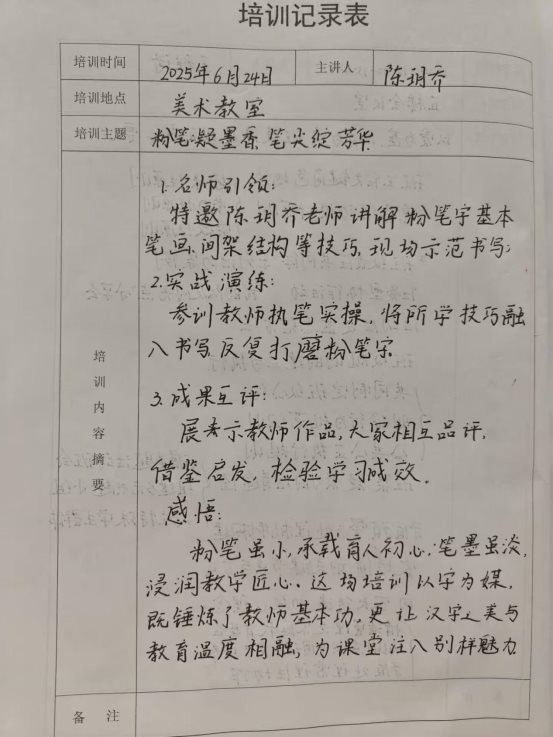 培训记录表
培训时间 2025年6月24日 主讲人 陈玥乔
培训地点 美术教室
培训主题 粉笔凝墨香 笔尖绽芳华
培训内容摘要
1.名师引领:
特邀陈玥乔老师讲解粉笔字基本
笔画、间架结构等技巧,现场示范书写;
2.实战演练:
参训教师执笔实操,将所学技巧融
入书写,反复打磨粉笔字.
3.成果互评:
展示教师作品,大家相互品评,
借鉴启发,检验学习成效.
感悟:
粉笔虽小,承载育人初心,笔墨虽淡,
浸润教学匠心、这场培训以字为媒,
既锤炼了教师基本功,更让汉字之美与
教育温度相融,为课堂注入别样魅力
备注